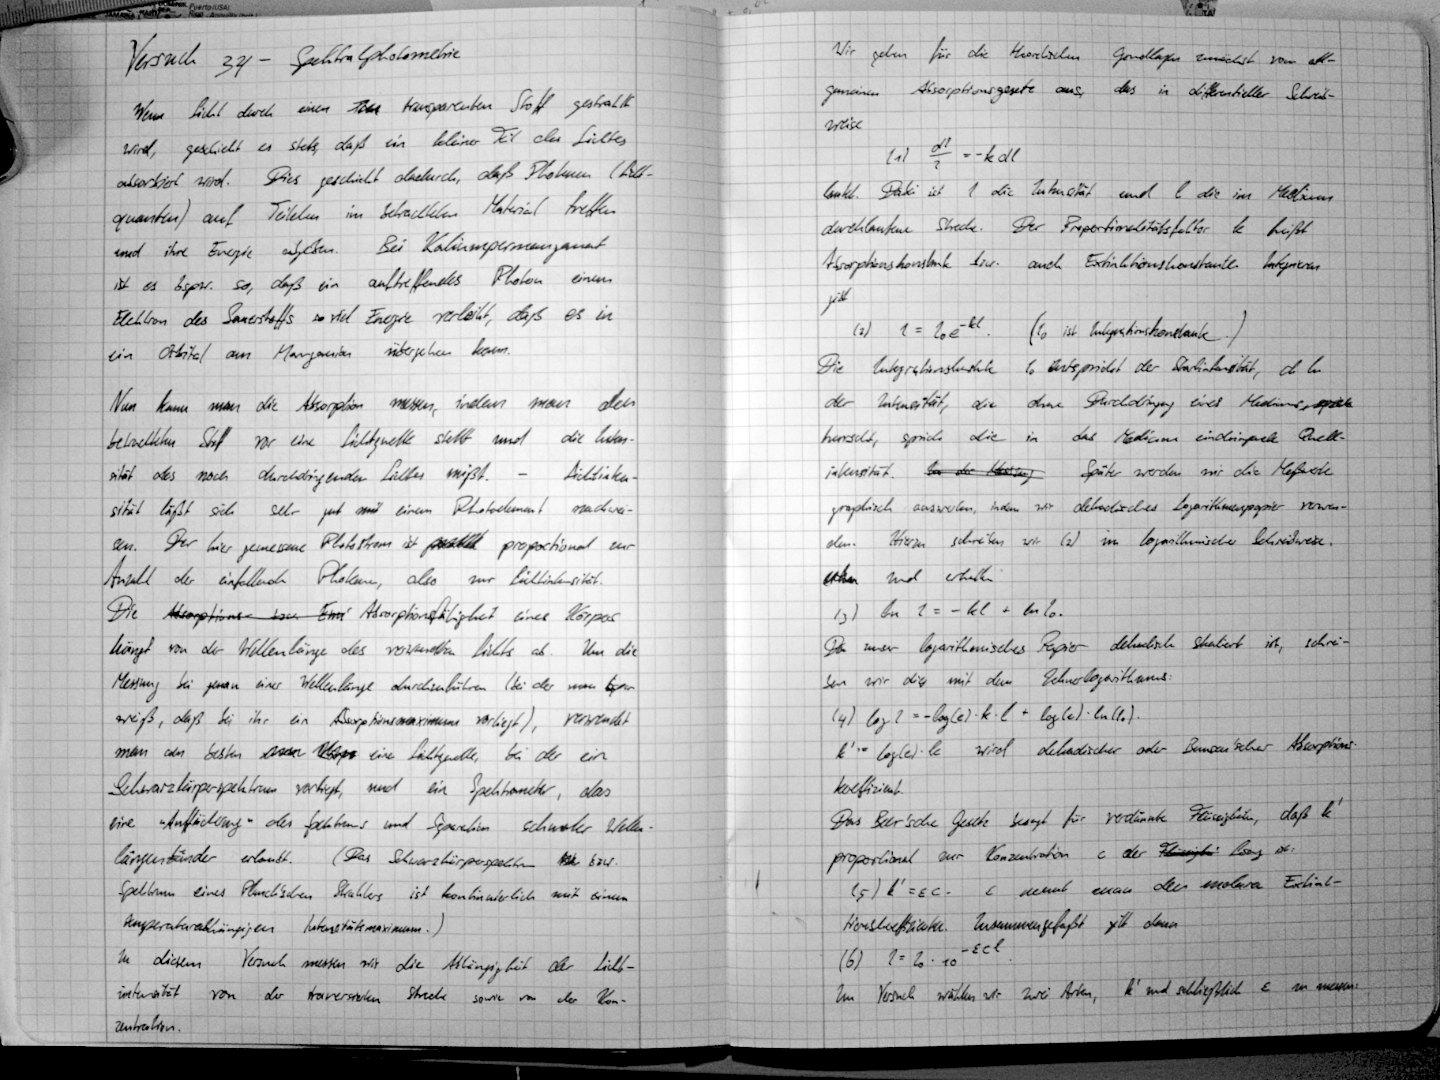 Versuch 34 – Spektralphotometrie
Wenn Licht durch einen transparenten Stoff gestrahlt
wird, geschieht es stets, daß ein kleiner Teil des Lichtes
absorbiert wird. Dies geschieht dadurch, daß Photonen (Licht-
quanten) auf Teilchen im betrachteten Material treffen
und ihre Energie abgeben. Bei Kaliumpermanganat
ist es bspw. so, daß ein auftreffendes Photon einem
Elektron des Sauerstoffs so viel Energie verleiht, daß es in
ein Orbital am Mangan übergehen kann.
Nun kann man die Absorption messen, indem man den
betrachteten Stoff vor eine Lichtquelle stellt und die Inten-
sität des noch durchdringenden Lichtes mißt. – Lichtinten-
sität läßt sich sehr gut mit einem Photoelement nachwei-
sen. Der hier gemessene Photostrom ist proportional zur
Anzahl der einfallenden Photonen, also zur Lichtintensität.
Die Absorptionsfähigkeit eines Körpers
hängt von der Wellenlänge des verwendeten Lichts ab. Um die
Messung bei genau einer Wellenlänge durchzuführen (bei der man
weiß, daß bei ihr ein Absorptionsmaximum vorliegt), verwendet
man am besten eine Lichtquelle, bei der ein
Schwarzkörperspektrum vorliegt, und ein Spektrometer, das
eine "Auffächerung" des Spektrums und Separation schmaler Wellen-
längenbänder erlaubt. (Das Schwarzkörperspektrum bzw.
Spektrum eines Planck'schen Strahlers ist kontinuierlich mit einem
temperaturabhängigen Intensitätsmaximum.)
In diesem Versuch messen wir die Abhängigkeit der Licht-
intensität von der traversierten Strecke sowie von der Kon-
zentration.
Wir gehen für die theoretischen Grundlagen zunächst vom all-
gemeinen Absorptionsgesetz aus, das in differentieller Schreib-
weise
(1) dI/I = -k dl
lautet. Dabei ist I die Intensität und l die im Medium
durchlaufene Strecke. Der Proportionalitätsfaktor k heißt
Absorptionskonstante bzw. auch Extinktionskonstante. Integrieren
gibt
(2) I = I₀e^-kl. (I₀ ist Integrationskonstante.)
Die Integrationskonstante I₀ entspricht der Startintensität, d.h.
der Intensität, die ohne Durchdringung eines Mediums
herrscht, sprich die in das Medium eindringende Quell-
intensität. In der Messung Später werden wir die Meßwerte
graphisch auswerten, indem wir dekadisches Logarithmenpapier verwen-
den. Hierzu schreiben wir (2) in logarithmischer Schreibweise
und erhalten
(3) ln I = -kl + ln I₀.
Da unser logarithmisches Papier dekadisch skaliert ist, schrei-
ben wir dies mit dem Zehnerlogarithmus:
(4) log I = -log(e)·k·l + log(e)·ln(I₀).
k' = log(e)·k wird dekadischer oder Bunsen'scher Absorptions-
koeffizient.
Das Beer'sche Gesetz besagt für verdünnte Flüssigkeiten, daß k'
proportional zur Konzentration c der Lösung ist:
(5) k' = εc. ε nennt man den molaren Extink-
tionskoeffizienten. Zusammengefaßt gilt dann
(6) I = I₀ · 10^-εcl.
Im Versuch wählen wir zwei Arten, k' und schließlich ε zu messen: